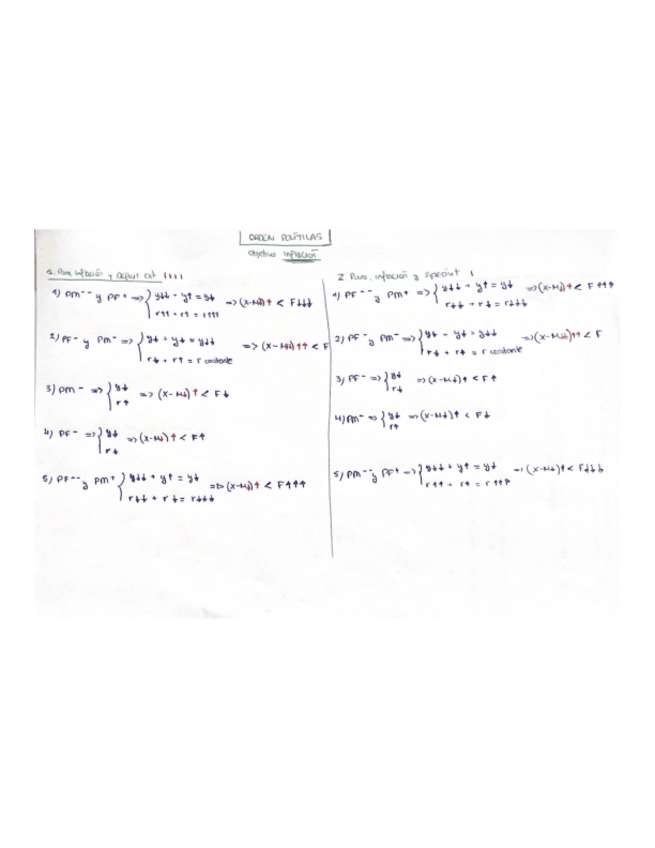 ORDEN POLÍTICAS
Objetivo inflación
1. Paro, inflación y Deficit Ext ↓↓↓↓
1) PM-- y PF+ => { y↓↓ + y↑ = y↓ => (X-M↓)↑ < F↓↓↓
r↑↑ + r↑ = r↑↑↑
2) PF- y PM- => { y↓ + y↓ = y↓↓ => (X-M↓↓)↑↑ < F
r↓ + r↑ = r constante
3) PM- => { y↓ => (X-M↓)↑ < F↓
r↑
4) PF- => { y↓ => (X-M↓)↑ < F↑
r↓
5) PF-- y PM+ { y↓↓ + y↑ = y↓ => (X-M↓)↑ < F↑↑↑
r↓↓ + r↓ = r↓↓↓
2. Paro, inflación y Ext
1) PF-- y PM+ => { y↓↓ + y↑ = y↓ => (X-M↓)↑ < F↑↑↑
r↓↓ + r↓ = r↓↓↓
2) PF- y PM- => { y↓ + y↓ = y↓↓ => (X-M↓↓)↑↑ < F
r↓ + r↑ = r constante
3) PF- => { y↓ => (X-M↓)↑ < F↑
r↓
4) PM- => { y↓ => (X-M↓)↑ < F↓
r↑
5) PM-- y PF+ => { y↓↓ + y↑ = y↓ => (X-M↓)↑ < F↓↓↓
r↑↑ + r↑ = r↑↑↑